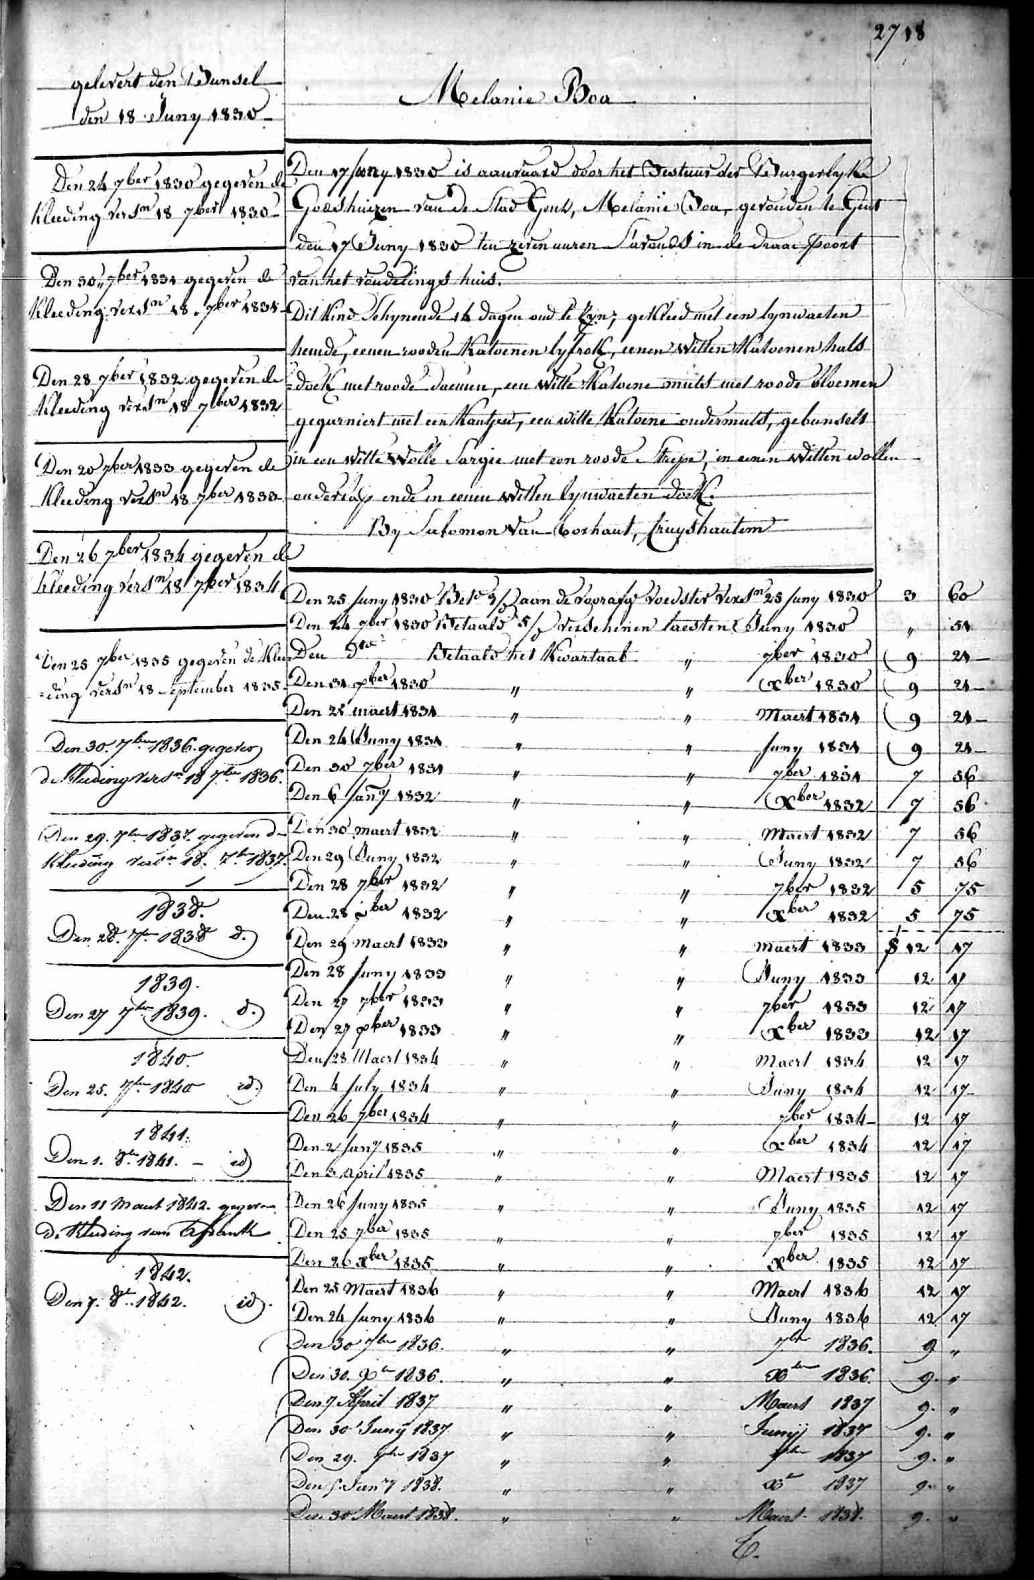 2718
gelevert den Bunsel
den 18 Juny 1830
Melanie Boa
Den 24 7ber 1830 gegeven de
Kleeding versn 18 7ber 1830
Den 30 7ber 1831 gegeven de
Kleeding versn 18 7ber 1831
Den 28 7ber 1832 gegeven de
Kleeding versn 18 7ber 1832
Den 20 7ber 1833 gegeven de
Kleeding versn 18 7ber 1833
Den 26 7ber 1834 gegeven de
kleeding versn 18 7ber 1834
Den 25 7ber 1835 gegeven de Klee
=ding versn 18 September 1835
Den 30. 7ber 1836. gegeven
de Kleeding versn 18 7ber 1836.
Den 29. 7ber 1837. gegeven de
Kleeding versn 18. 7br 1837.
1838.
Den 28. 7r 1838 d.
1839.
Den 27 7ber 1839. d.
1840.
Den 25. 7ber 1840 id
1841.
Den 1. 8r 1841. — id
Den 11 Maert 1842. gegeven
de Kleeding van
1842.
Den 7. 8r 1842. id.
Den 17 Juny 1830 is aanvaard door het Bestuur der Burgerlyke
Godshuizen van de Stad Gent, Melanie Boa, gevonden te Gent
den 17 Juny 1830 ten zeven uuren S'avonds in de draai poort
van het vondelings huis.
Dit kind Schynende 14 dagen oud te zyn, gekleed met een lynwaeten
hemde, eenen rooden Katoenen lyfrok, eenen Witten Katoenen hals
=doek met roode, een Witte Katoene muts met roode bloemen
gegarniert met een Kantjen, een witte Katoene ondermuts, gebunselt
in een Witte Wolle Sargie met een roode Streepe, in eenen Witten wollen
ende in eenen Witten lynwaeten doek.
By Salomon Van, Cruyshautem
Den 25 Juny 1830 aan de vooraf voedster versn 25 Juny 1830 3 60
Den 24 7ber 1830 Betaald verschenen laesten Juny 1830 " 51
Den do Betaald het Kwartaal " 7ber 1830 9 21
Den 31 xber 1830 " " Xber 1830 9 21
Den 25 maert 1831 " " Maert 1831 9 21
Den 24 Juny 1831 " " Juny 1831 9 21
Den 30 7ber 1831 " " 7ber 1831 7 56
Den 6 Jany 1832 " " Xber 1832 7 56
Den 30 maert 1832 " " Maert 1832 7 56
Den 29 Juny 1832 " " Juny 1832 7 56
Den 28 7ber 1832 " " 7ber 1832 5 75
Den 28 xber 1832 " " Xber 1832 5 75
Den 29 Maert 1833 " " maert 1833 12 17
Den 28 Juny 1833 " " Juny 1833 12 17
Den 27 7ber 1833 " " 7ber 1833 12 17
Den 27 xber 1833 " " Xber 1833 12 17
Den 28 Maert 1834 " " Maert 1834 12 17
Den 4 July 1834 " " Juny 1834 12 17
Den 26 7ber 1834 " " 7ber 1834 12 17
Den 2 Jany 1835 " " Xber 1834 12 17
Den 3 April 1835 " " Maert 1835 12 17
Den 26 Juny 1835 " " Juny 1835 12 17
Den 25 7ber 1835 " " 7ber 1835 12 17
Den 26 xber 1835 " " Xber 1835 12 17
Den 25 Maert 1836 " " Maert 1836 12 17
Den 24 Juny 1836 " " Juny 1836 12 17
Den 30 7ber 1836. " " 7br 1836. 9 "
Den 30. Xbr 1836. " " Xber 1836. 9. "
Den 7 April 1837 " " Maert 1837 9. "
Den 30 Juny 1837 " " Junij 1837 9. "
Den 29. 7br 1837 " " 7br 1837 9. "
Den 5 Jany 1838. " " Xr 1837 9. "
Den 30 Maert 1838. " " Maert 1838. 9. "